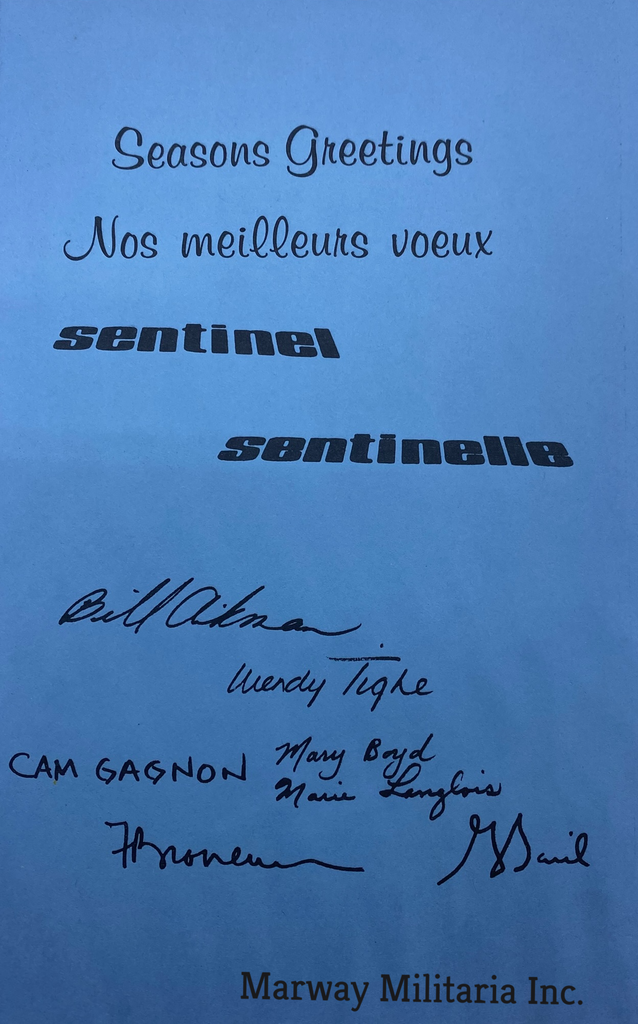 Seasons Greetings
Nos meilleurs voeux
sentinel
sentinelle
Bill Aikman
Wendy Tighe
CAM GAGNON
Mary Boyd
Marie Langlois
Marway Militaria Inc.